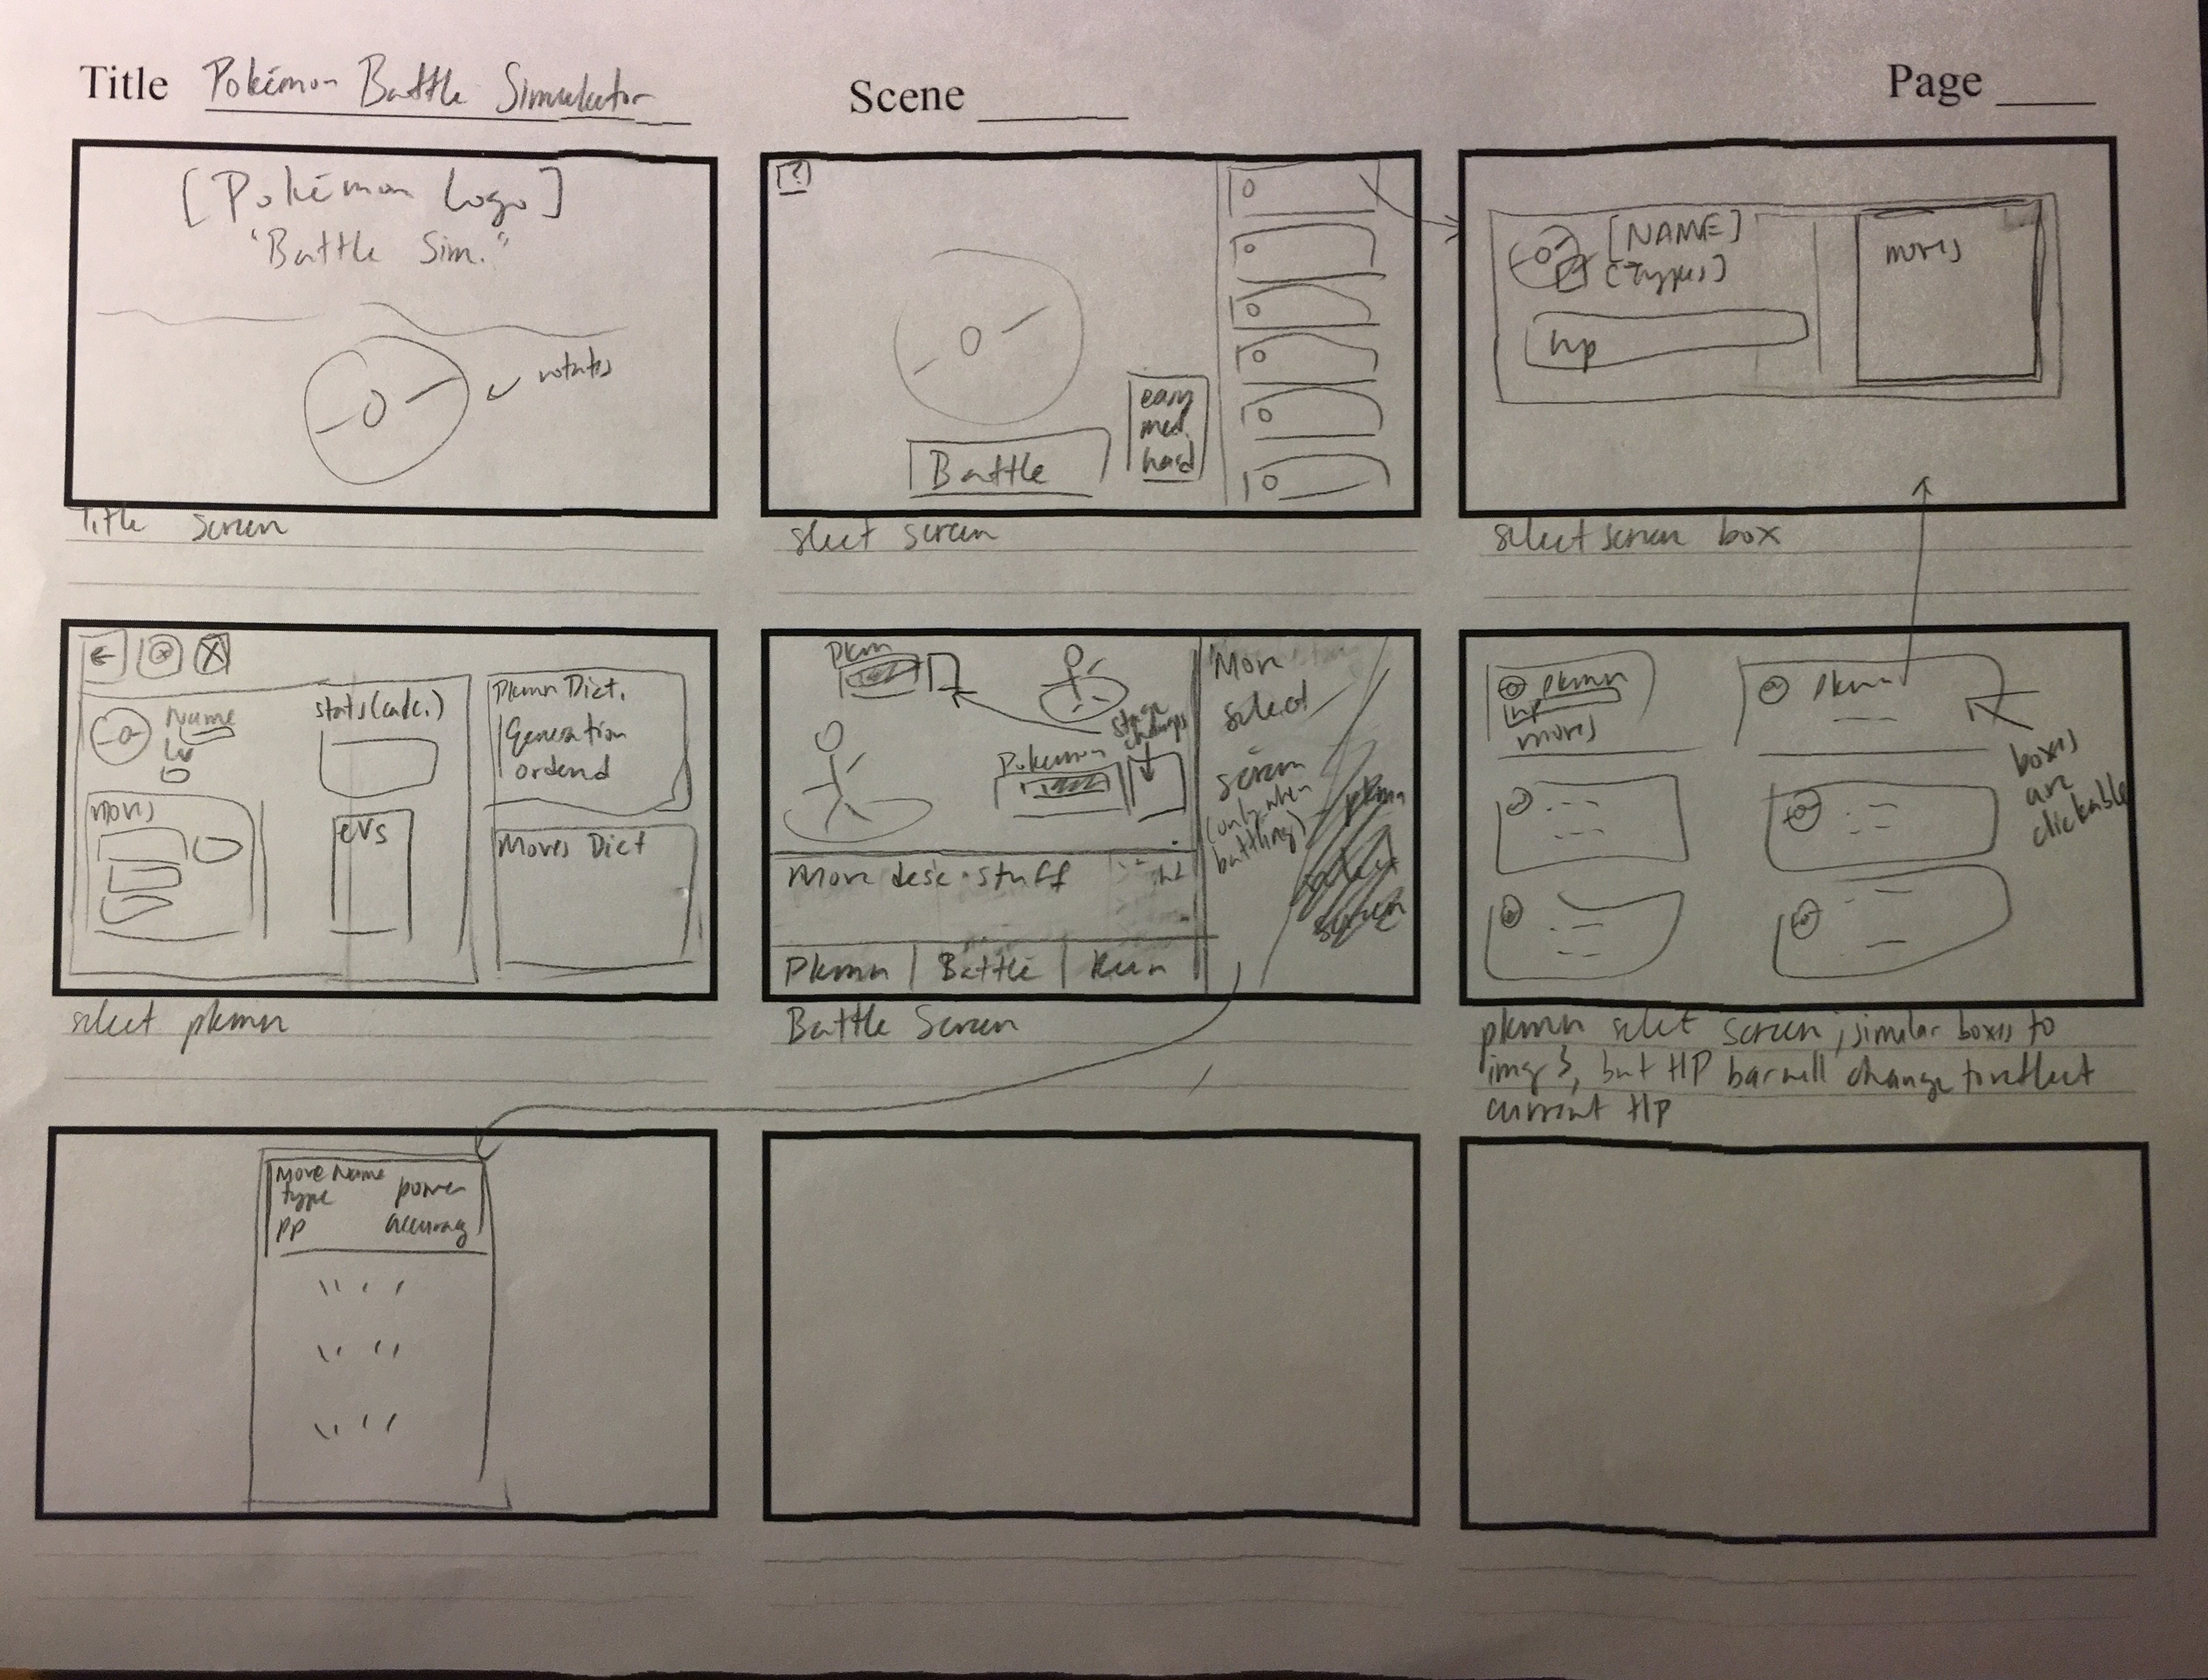 Title Pokémon Battle Simulator
Scene
Page
[Pokémon Logo]
"Battle Sim."
rotates
Title screen
[?]
Battle
easy
med.
hard
slect screen
[NAME]
[types]
hp
moves
select screen box
Name
Lv
stats (calc.)
moves
EVs
Pkmn Dict.
Generation
ordend
Moves Dict
select pkmn
pkmn
Pokemon
stage
changes
Move
select
screen
(only when
battling)
pkmn
select
screen
Move desc. stuff
Pkmn | Battle | Run
Battle Screen
pkmn
hp
moves
pkmn
boxes
are
clickable
pkmn selct screen; similar boxes to
img 3, but HP bar will change to reflect
current HP
Move Name
type
power
PP
accuracy